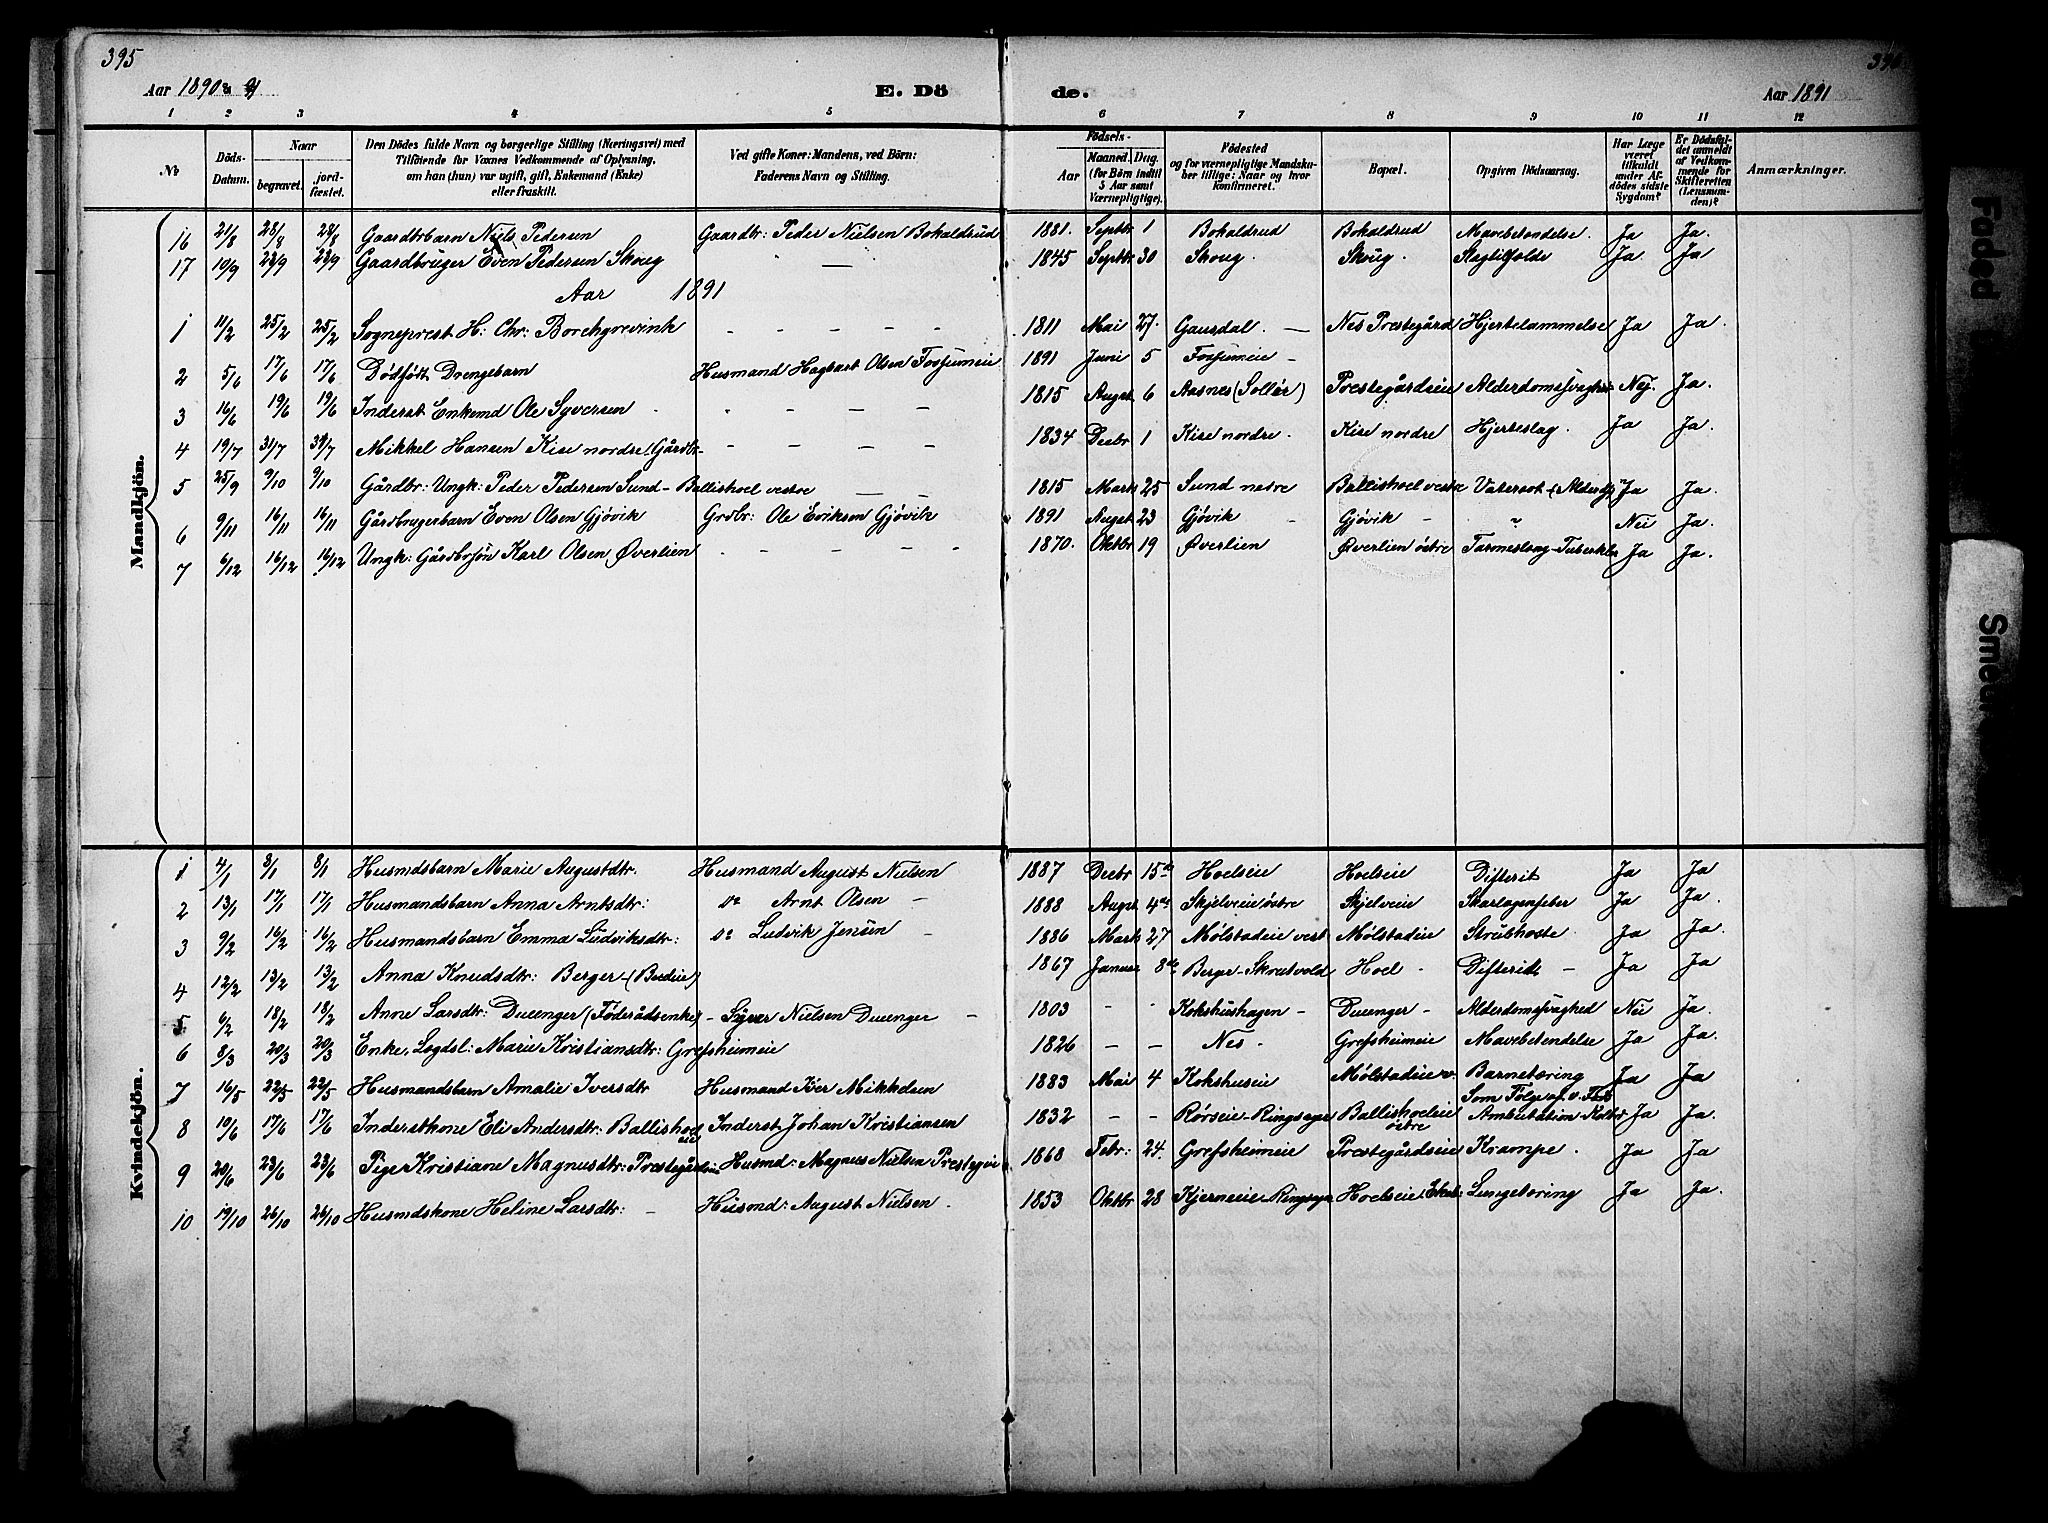 395
396
Aar 1890 & 91
E. Dö
de.
Aar 1891
1 2 3 4 5 6 7 8 9 10 11 12
No
Döds-Datum.
Naar
begravet.
jord-fæstet.
Den Dödes fulde Navn og borgerlige Stilling (Næringsvei) med
Tilföiende for Voxnes Vedkommende af Oplysning,
om han (hun) var ugift, gift, Enkemand (Enke)
eller fraskilt.
Ved gifte Koner: Mandens, ved Börn:
Faderens Navn og Stilling.
Födsels-
Aar
Maaned. Dag.
(for Börn indtil
5 Aar samt
Værnepligtige).
Födested
og for værnepligtige Mandska-
ber tillige: Naar og hvor
konfirmeret.
Bopæl.
Opgiven Dödsaarsag.
Har Læge
været
tilkaldt
under Af-
dödes sidste
Sygdom?
Er Dödsfal-
det anmeldt
af Vedkom-
mende for
Skifteretten
(Lensman-
den)?
Anmærkninger.
Mandkjön.
16 21/8 28/8 28/8 Gaardbrbarn Niels Pedersen Gaardbr: Peder Nielsen Bokaldrud 1881. Septbr 1 Bokaldrud Bokaldrud Mavebetendelse. Ja Ja.
17 10/9 23/9 23/9 Gaardbruger Even Pedersen Skoug — 1845 Septbr 30 Skoug. Skoug. Slagtilfælde Ja Ja
Aar 1891
1 11/2 25/2 25/2 Sogneprest H: Chr: Borchgrevink - - - - 1811 Mai 27. Gausdal. — Nes Prestegård Hjertelammelse Ja Ja.
2 5/6 17/6 17/6 Dödfödt Drengebarn Husmand Hagbart Olsen Fossumeie 1891 Juni 5 Fossumeie -
3 16/6 19/6 19/6 Inderst Enkemd Ole Syversen - - - - 1815 Augst 6 Aasnes (Sollör) Prestegårdseie Alderdomssvaghed Nej. Ja.
4 19/7 31/7 31/7 Mikkel Hansen Kise nordre. Gårdbr- - - - - 1834 Decbr 1 Kise nordre. Kise nordre Hjerteslag. Ja Ja.
5 25/9 9/10 9/10 Gårdbr: Ungk: Peder Pedersen Sund - Ballishoel vestre — — 1815 Marts 25 Sund nedre Ballishoel vestre Vatersot (Alderd) Ja Ja.
6 9/11 16/11 16/11 Gårdbrugerbarn Even Olsen Gjövik Grdbr: Ole Eriksen Gjövik 1891 Augst 23 Gjövik - Gjövik - " Nei Ja.
7 6/12 16/12 16/12 Ungk: Gårdbrsön Karl Olsen Øverlien - - - - - 1870. Oktbr 19 Øverlien Øverlien östre Tarmeslag-Tuberkler Ja Ja.
Kvindekjön.
1 4/1 8/1 8/1 Husmdsbarn Marie Augustdtr. Husmand August Nielsen 1887 Decbr 15de Hoelseie Hoelseie Difterit Ja Ja
2 13/1 17/1 17/1 Husmandsbarn Anna Arntsdtr: Do Arnt Olsen - 1888 Augst 4de Skjelveie östre Skjelveie Skarlagensfeber Ja Ja.
3 9/2 16/2 16/2 Husmandsbarn Emma Ludviksdtr: Do Ludvik Jensen - 1886 Marts 27 Mølstadeie vest Mølstadeie Strubhoste. Ja Ja
4 12/2 13/2 13/2 Anna Knudsdtr: Berger (Budeie) 1867 Januar 8de Berger-Skoutvold Hoel. Difterit - Ja Ja
5 6/2 18/2 18/2 Anne Larsdtr: Duenger (Föderådsenke) - Syver Nielsen Duenger - 1803 - - Kokshushagen - Duenger - Alderdomssvaghed Nei Ja.
6 8/3 20/3 20/3 Enke, Logdsl: Marie Kristiansdtr: Grefsheimeie 1826 - - Nes. Grefsheimeie Mavebetendelse Ja Ja.
7 16/5 22/5 22/5 Husmandsbarn Amalie Iversdtr Husmand Iver Mikkelsen 1883 Mai 4 Kokshuseie Mølstadeie v. Barnetæring Ja Ja.
8 10/6 17/6 17/6 Inderstkone Eli Andersdtr: Ballishoel eie Inderst Johan Kristiansen 1832 - - Rörseie-Ringsager Ballishoelseie östre Som Følge af v. Fods Ambutation Ja Ja.
9 20/6 23/6 23/6 Pige Kristiane Magnusdtr: Prestegårdseie Husmd: Magnus Nielsen Prestegeie 1868 Febr: 24. Grefsheimeie Prestegårdseie Krampe. Ja Ja.
10 19/10 26/10 26/10 Husmdskone Heline Larsdtr: - Husmd: August Nielsen. 1853 Oktbr 28 Kjerneeie Ringsager Hoelseie Lungetæring Ja Ja.
Föded